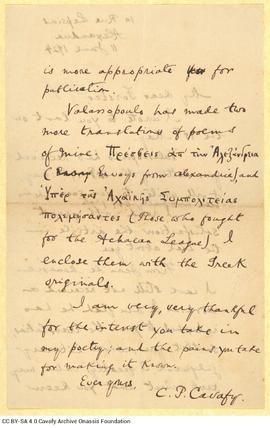 is more appropriate for
publication.
Valassopoulo has made two
more translations of poems
of mine Πρέσβεις ἀπ' τὴν Ἀλεξάνδρεια
(Envoys from Alexandria), and
Ὑπὲρ τῆς Ἀχαϊκῆς Συμπολιτείας
πολεμήσαντες (Those who fought
for the Achaean League). I
enclose them with the Greek
originals.
I am very, very thankful
for the interest you take in
my poetry; and the pains you take
for making it known.
Ever yours,
C. P. Cavafy.
CC BY-SA 4.0 Cavafy Archive Onassis Foundation